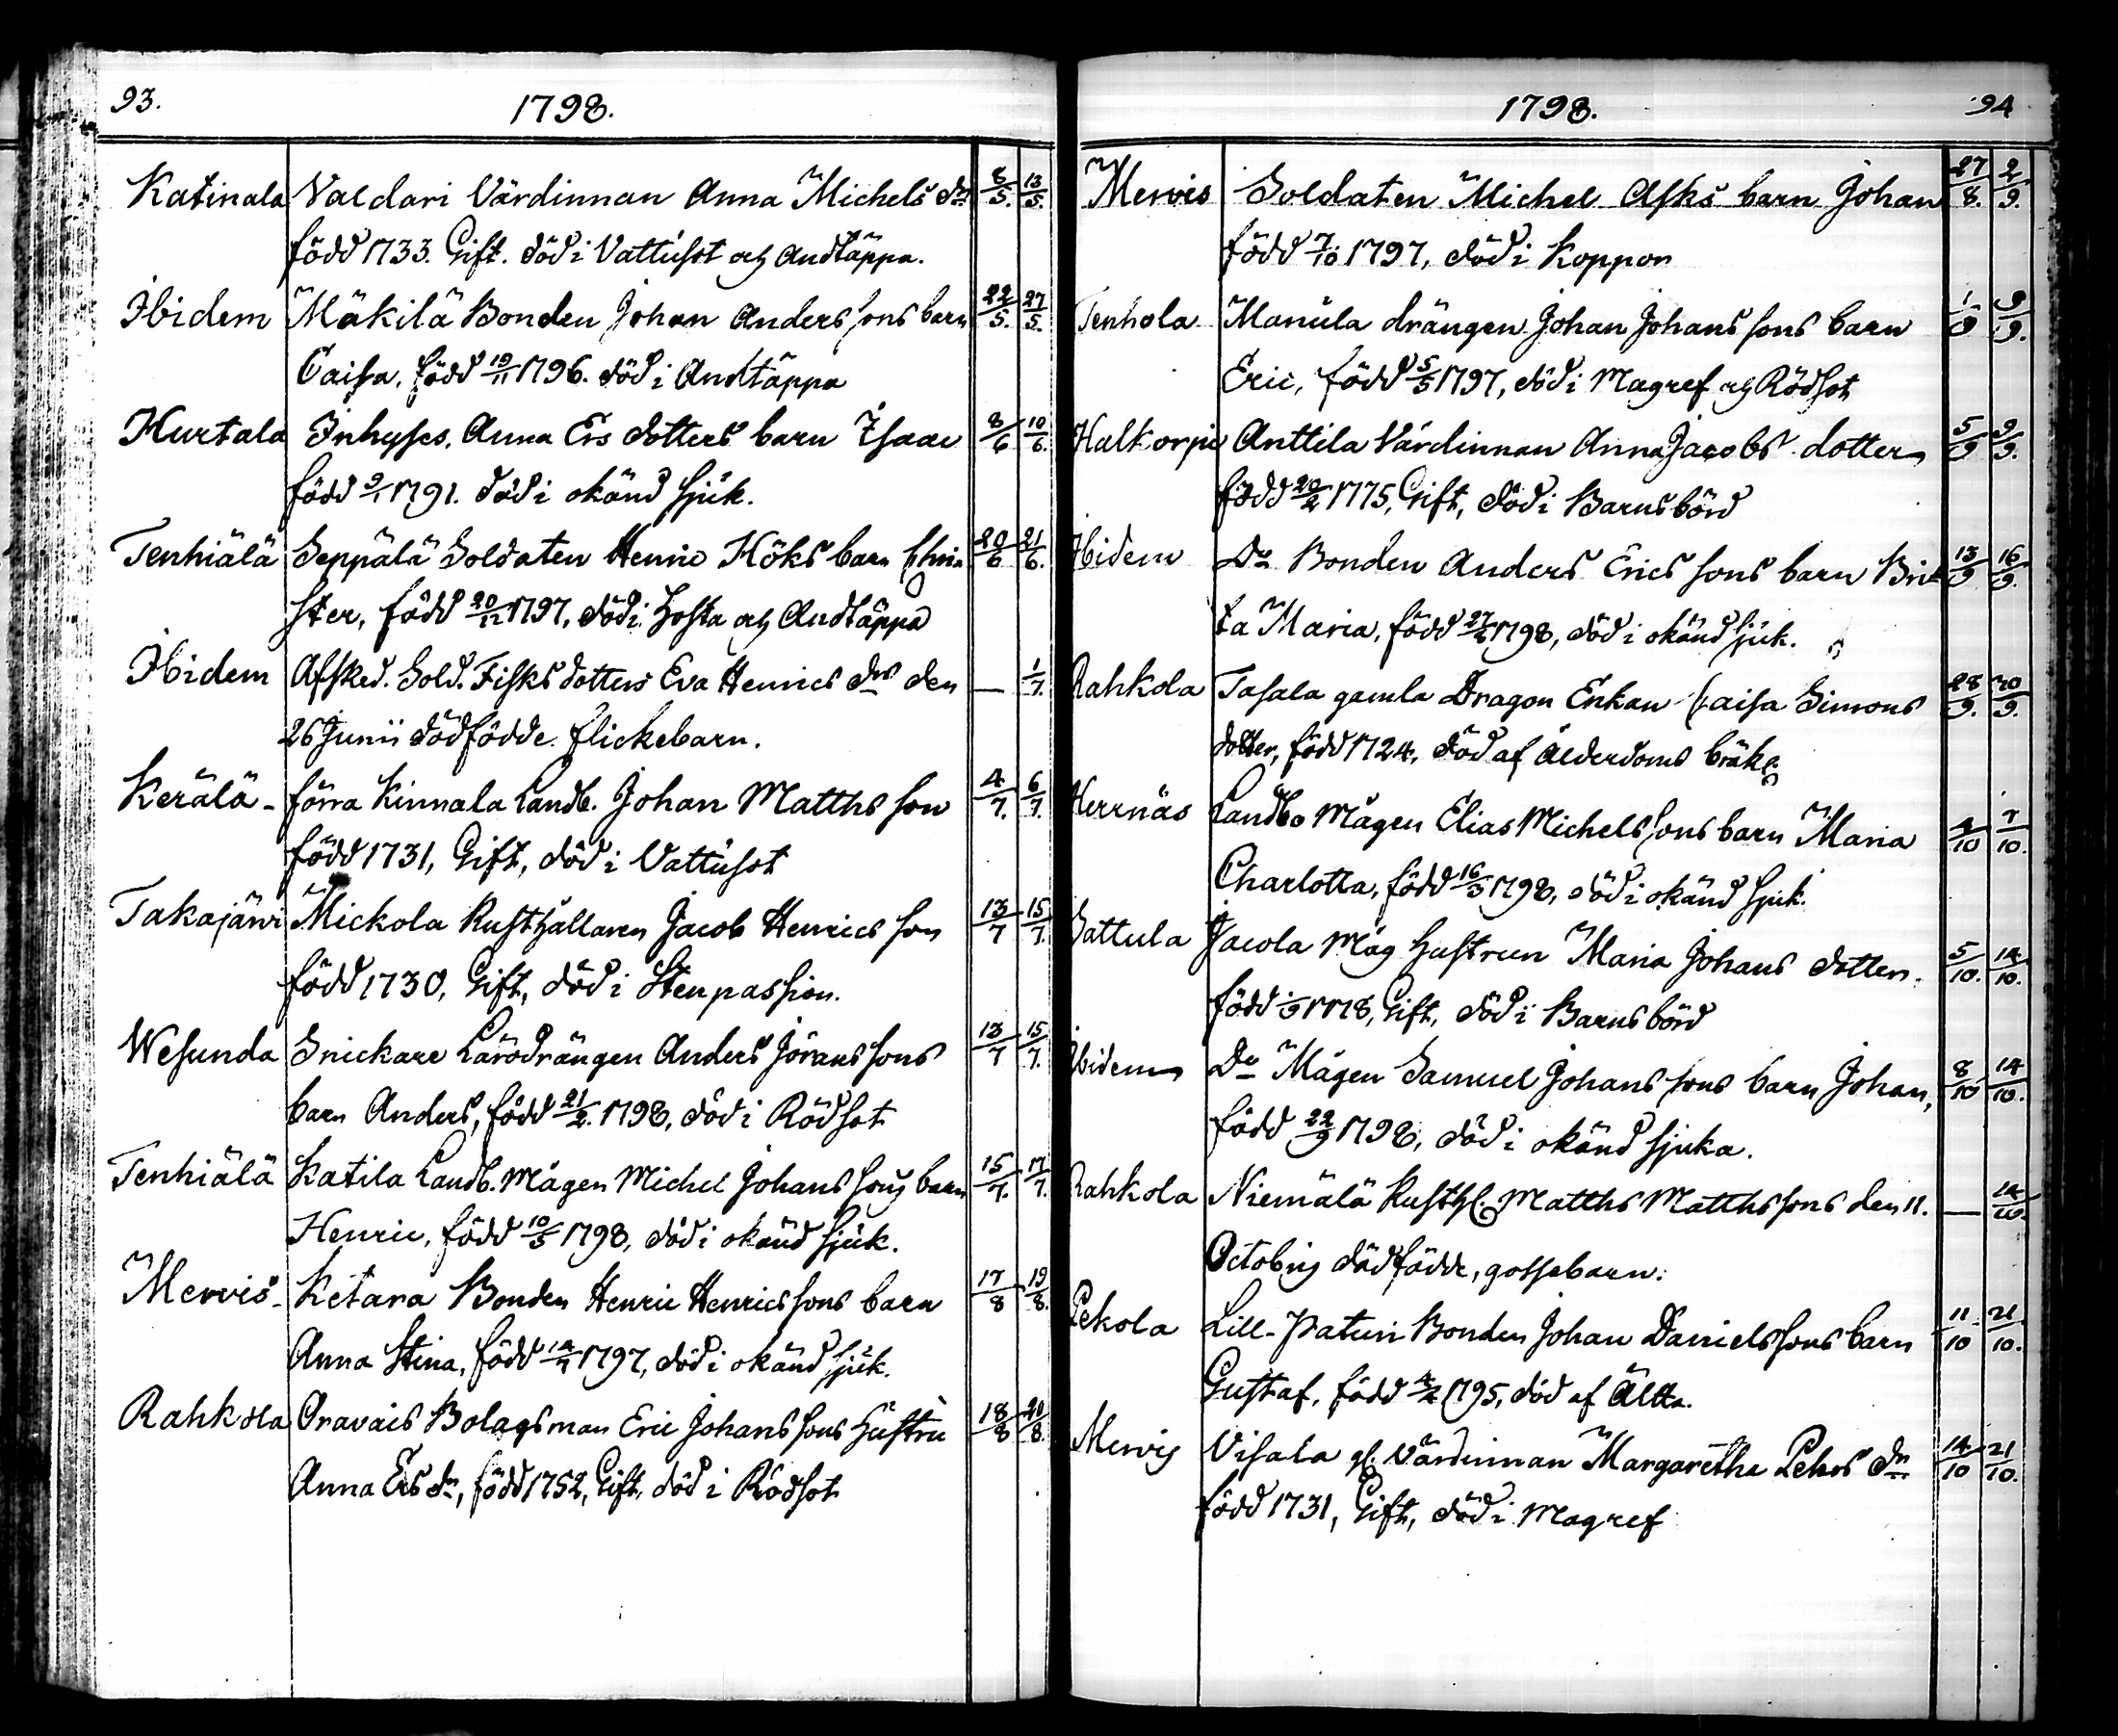 93.
1798.
Katinala Valdari Värdinnan Anna Michels dr 8/5. 13/5.
född 1733. Gift. död i Vattusot och Andtäppa.
Ibidem Mäkilä Bonden Johan Anderssons barn 22/5. 27/5.
Caisa, född 19/11 1796. död i Andtäppa
Hurtala Inhyses. Anna Ers dotters barn Isaac 8/6 10/6.
född 9/1 1791. död i okänd sjuk.
Tenhiälä Seppälä Soldaten Henric Höks barn Chri- 20/6 21/6.
ster, född 20/12 1797, död i Hosta och Andtäppa
Ibidem Afsked. Sold. Fisks dotters Eva Henrics drs den — 1/7.
26 Junii dödfödde. flickebarn.
Kerälä- förra Kinnala Landb. Johan Matthsson 4/7. 6/7.
född 1731, Gift, död i Vattusot
Takajärvi Mickola Rusthållaren Jacob Henricsson 13/7 15/7.
född 1730, Gift, död i Stenpassion.
Wesunda Snickare Lärodrängen Anders Jöranssons 13/7 15/7.
barn Anders, född 21/2. 1798, död i Rödsot
Tenhiälä Katila Landb. Mågen Michel Johanssons barn 15/7. 17/7.
Henric, född 10/5 1798, död i okänd sjuk.
Mervis- Ketara Bonden Henric Henricssons barn 17/8 19/8.
Anna Stina, född 14/7 1797, död i okänd sjuk.
Rahkola Oravais Bolagsman Eric Johanssons hustru 18/8 20/8.
Anna Ers dr, född 1752, Gift, död i Rödsot
1798.
94
Mervis Soldaten Michel Asks barn Johan 27/8. 2/9.
född 7/10 1797, död i Koppor
Tenhola Manula drängen Johan Johanssons barn 1/9 9/9.
Eric, född 5/5 1797, död i Magref och Rödsot
Halkorpi Anttila Värdinnan Anna Jacobs dotter 5/9 9/9.
född 20/2 1775, Gift, död i Barnsbörd
Ibidem Do Bonden Anders Ericssons barn Brit- 13/9 16/9.
ta Maria, född 27/8 1798, död i okänd sjuk.
Rahkola Tasala gamla Dragon Enkan Caisa Simons 28/9. 30/9.
dotter, född 1724, död af Ålderdoms bräk
Herrnäs Landbo Mågen Elias Michelssons barn Maria 4/10 7/10.
Charlotta, född 16/3 1798, död i okänd sjuk.
Sattula Jacola Måg hustrun Maria Johans dotter. 5/10. 14/10.
född 1778, Gift, död i Barnsbörd
Ibidem Do Mågen Samuel Johanssons barn Johan, 8/10 14/10.
född 22/9 1798, död i okänd sjuka.
Rahkola Niemälä Rusth. Matths Matthssons den 11. — 14/10.
Octobris dödfödde, gossebarn.
Pekola Lill-Paturi Bonden Johan Danielssons barn 11/10 21/10.
Gustaf, född 4/4 1795, död af Ältta.
Mervis Visala gl. Värdinnan Margaretha Pehrs dr 14/10 21/10.
född 1731, Gift, död i Magref